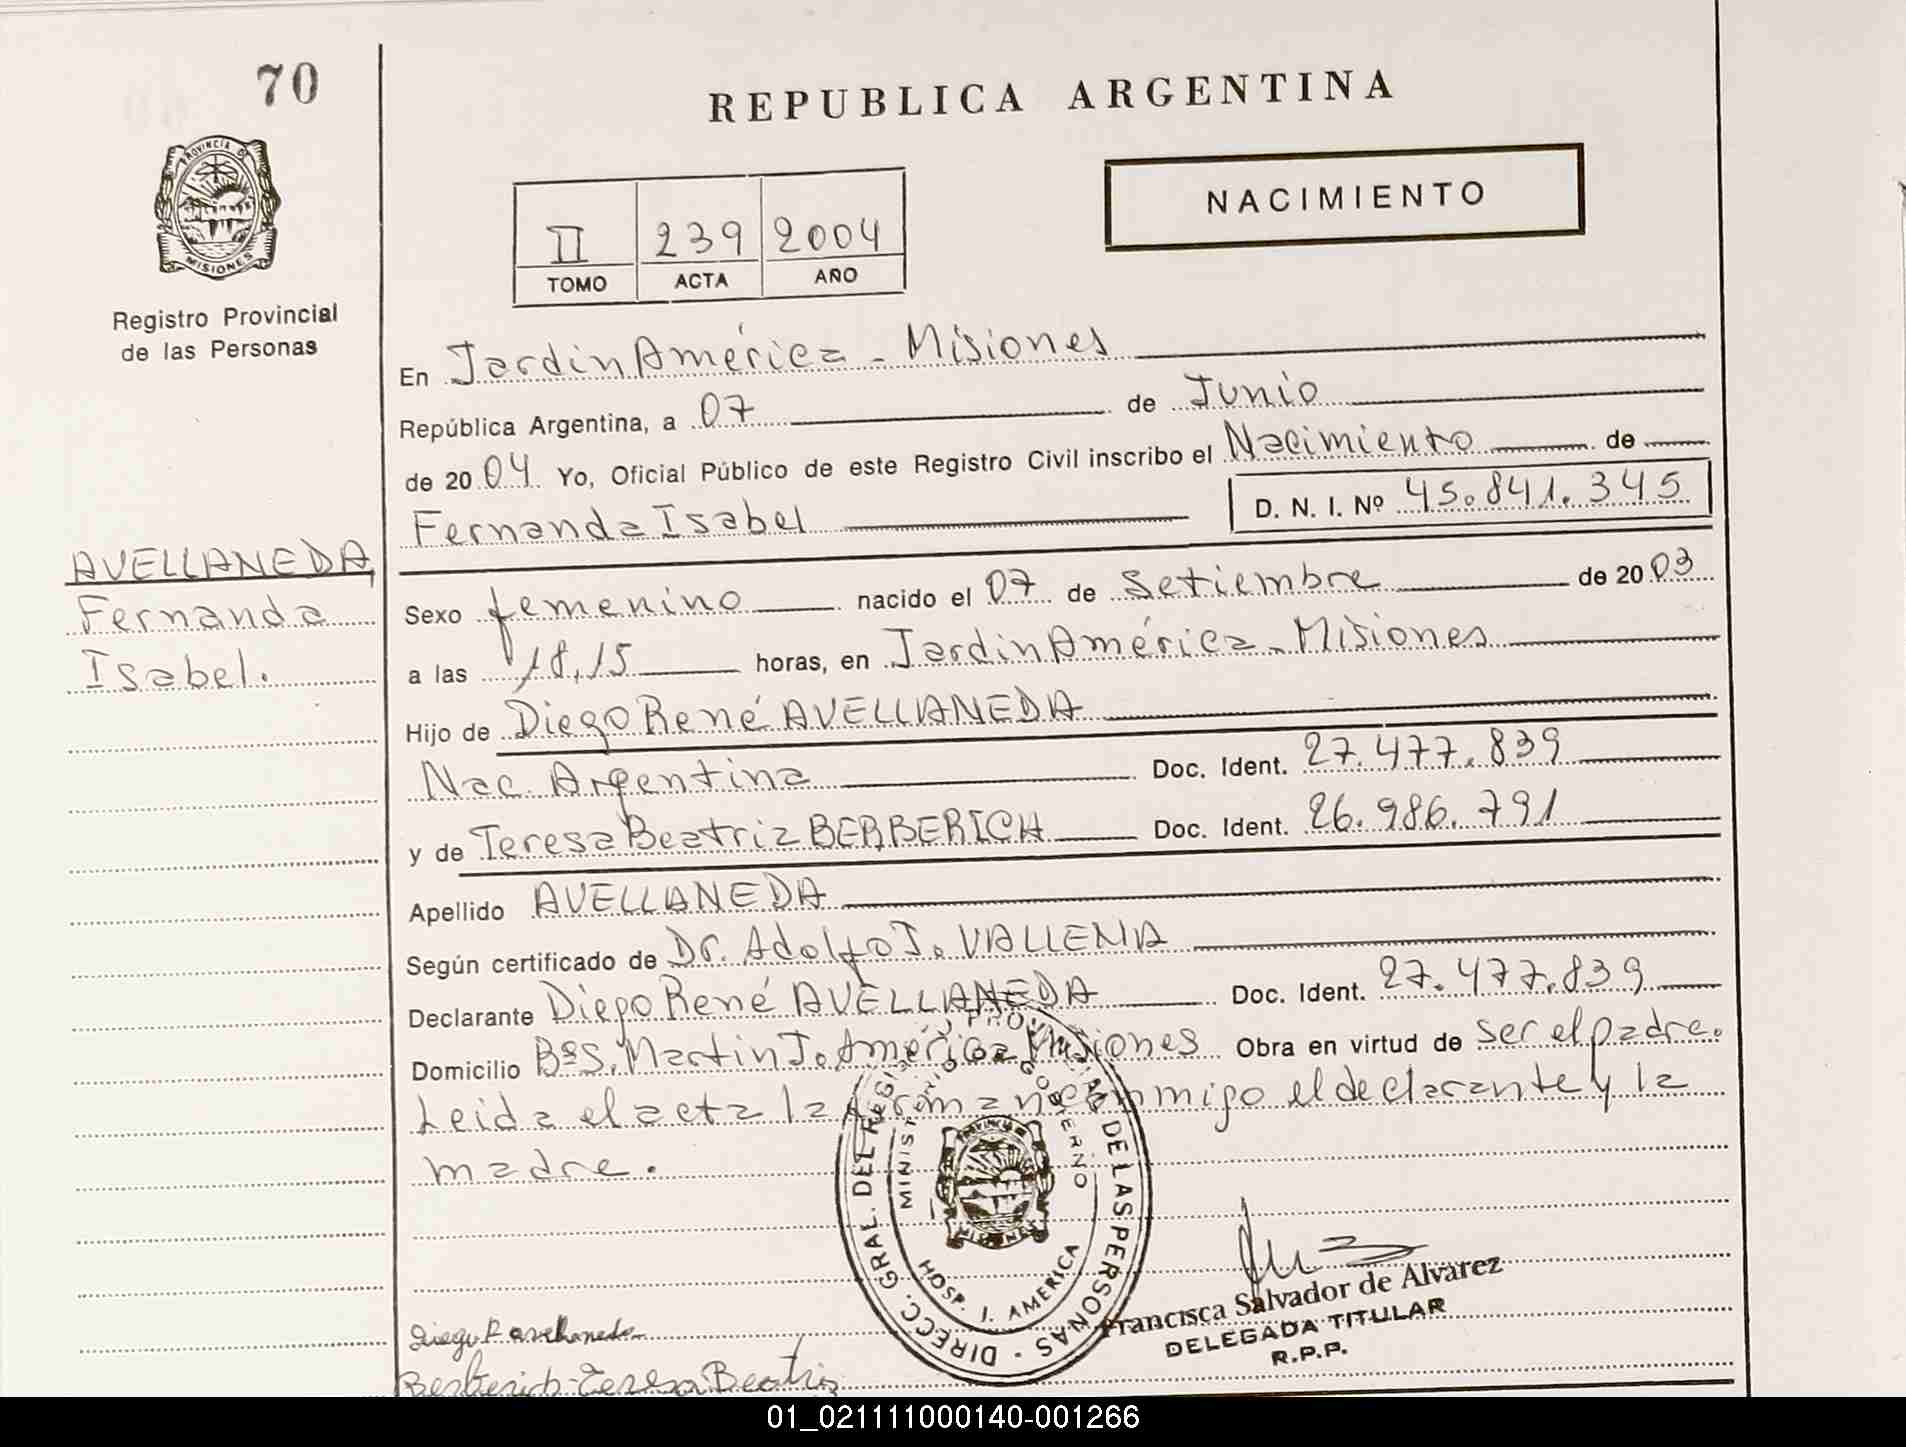 70
REPUBLICA ARGENTINA
PROVINCIA DE
MISIONES
Registro Provincial
de las Personas
II 239 2004
TOMO ACTA AÑO
NACIMIENTO
En Jardin América - Misiones
República Argentina, a 07 de Junio
de 2004 Yo, Oficial Público de este Registro Civil inscribo el Nacimiento de
Fernanda Isabel D. N. I. Nº 45.841.345
AVELLANEDA,
Fernanda
Isabel.
Sexo femenino nacido el 07 de Setiembre de 2003
a las 18,15 horas, en Jardin América - Misiones
Hijo de Diego René AVELLANEDA
Nac. Argentina Doc. Ident. 27.477.839
y de Teresa Beatriz BERBERICH Doc. Ident. 26.986.791
Apellido AVELLANEDA
Según certificado de Dr. Adolfo J. VALLENA
Declarante Diego René AVELLANEDA Doc. Ident. 27.477.839
Domicilio BºS. Martin J. América Misiones Obra en virtud de ser el padre.
Leida el acta la firman conmigo el declarante y la
madre.
DIRECC. GRAL. DEL REGISTRO PROVINCIAL DE LAS PERSONAS
MINISTERIO DE GOBIERNO
PROVINCIA DE
MISIONES
HOSP. J. AMERICA
Francisca Salvador de Alvarez
DELEGADA TITULAR
R.P.P.
Diego R avellaneda
Berberich Teresa Beatriz
01_021111000140-001266